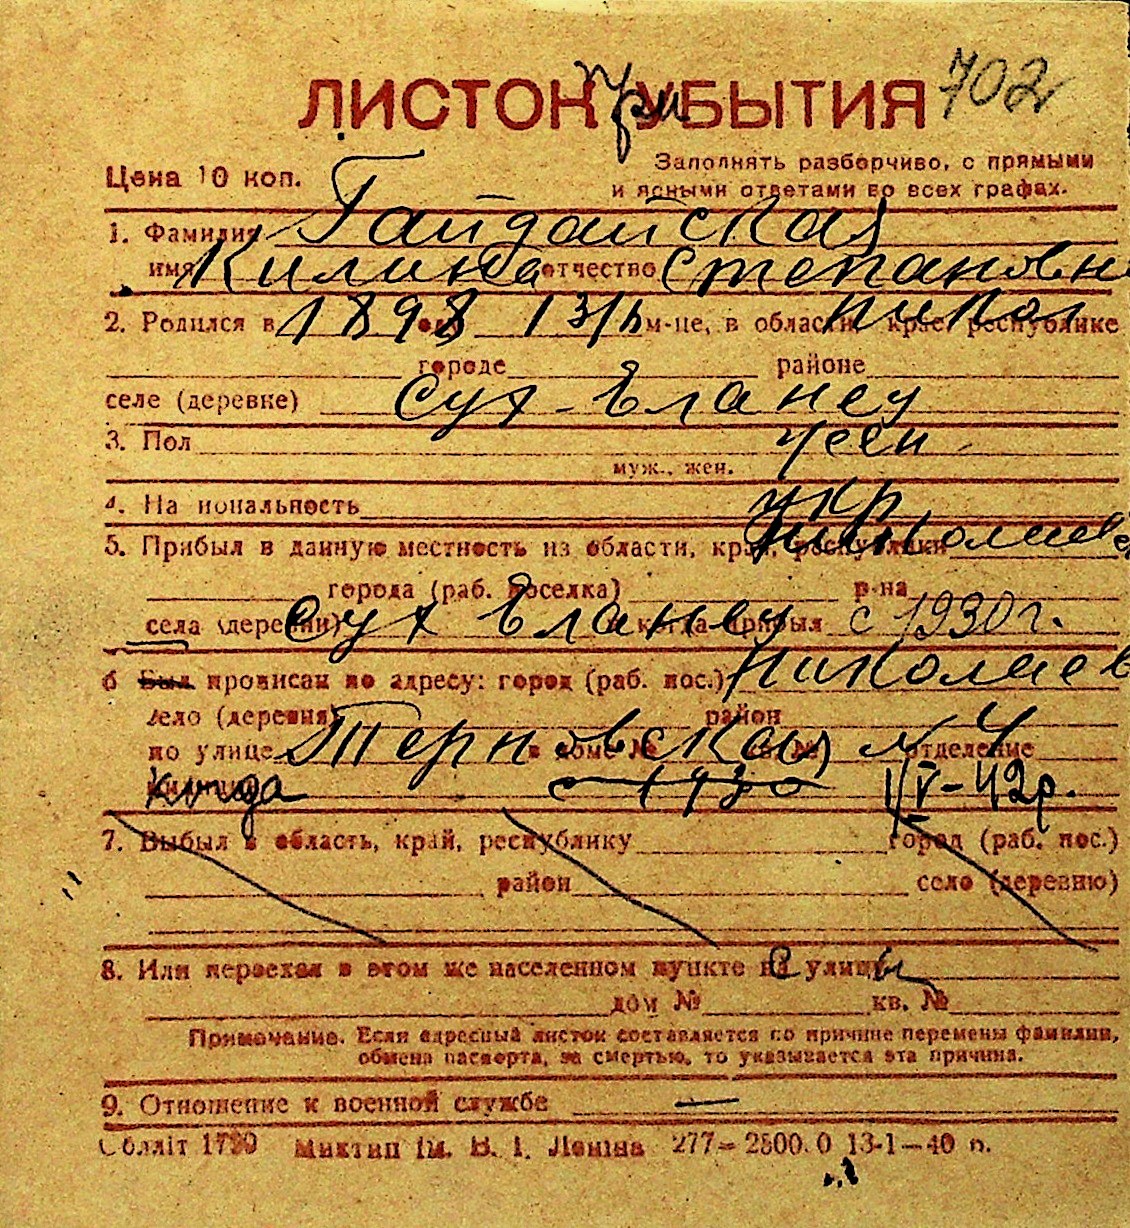 ЛИСТОК При УБЫТИЯ 702
Цена 10 коп. Заполнять разборчиво, с прямыми
и ясными ответами во всех графах.
1. Фамилия Гайдайская
имя Килина отчество Степановн
2. Родился в 1898 году 13/ м-це, в области, крае, республике Никол
городе районе
селе (деревне) Сух-Еланец
3. Пол жен
муж., жен.
4. Национальность укр
5. Прибыл в данную местность из области, края, республики Николаевс
города (раб. поселка) р-на
села (деревни) Сух Еланец и когда прибыл с 1930 г.
6 Был прописан по адресу: город (раб. пос.) Николаев
село (деревня) район
по улице Терновская в доме № кв. № № 4 отделение
милиции когда с 1930 1/V-42р.
7. Выбыл в область, край, республику город (раб. пос.)
район село (деревню)
8. Или переехал в этом же населенном пункте на улицу
дом № кв. №
Примечание. Если адресный листок составляется по причине перемены фамилии,
обмена паспорта, за смертью, то указывается эта причина.
9. Отношение к военной службе —
Облліт 1790 Миктип ім. В. І. Леніна 277—2500.0 13-1—40 р.